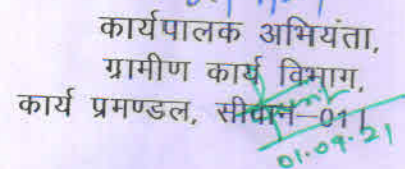 कार्यपालक अभियंता,
ग्रामीण कार्य विभाग,
कार्य प्रमण्डल, सीवान–01।
01.09.21